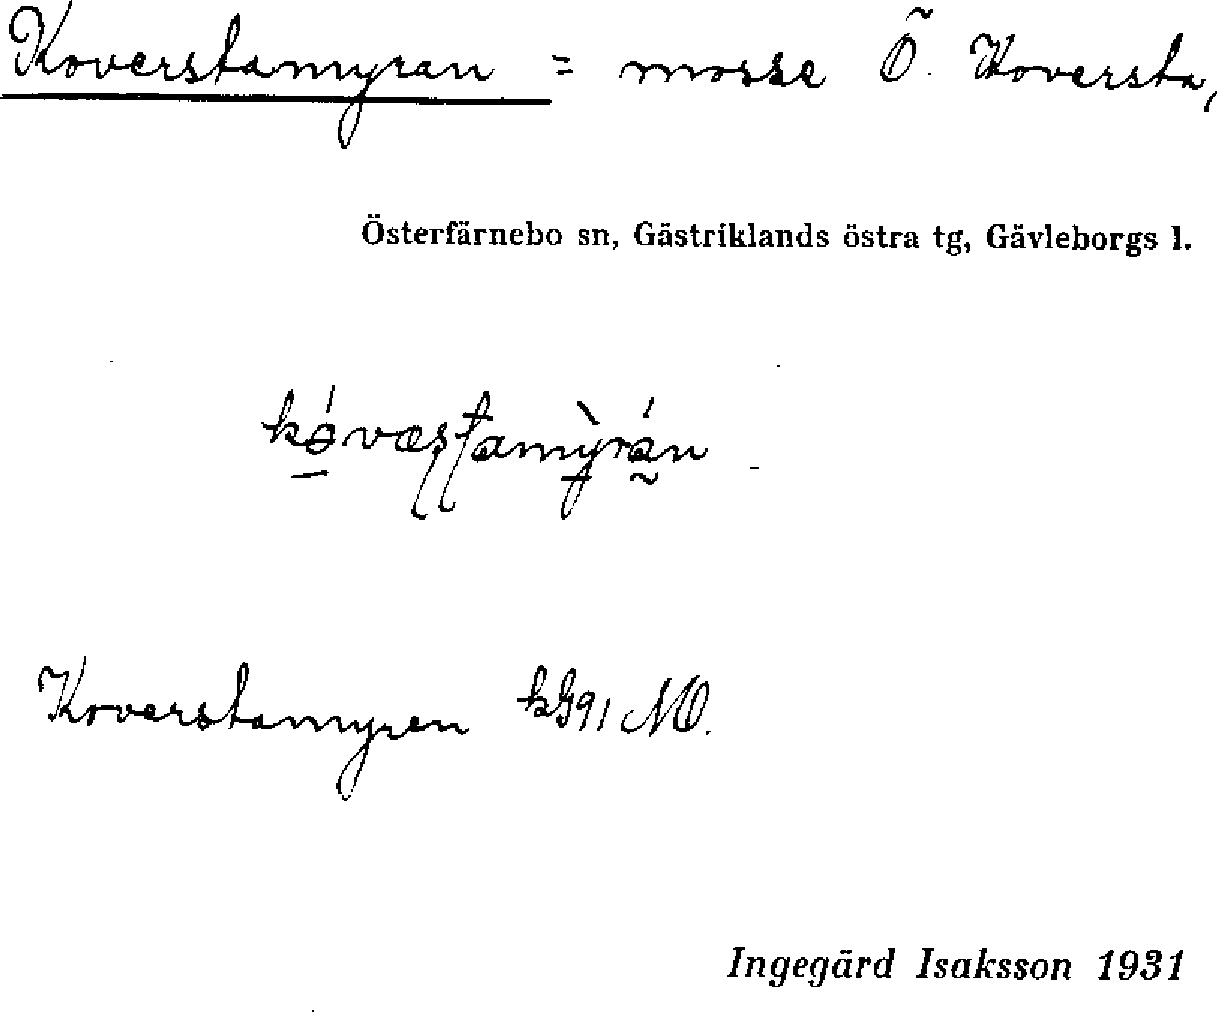 Koverstamyran = mosse Ö. Koversta,
Österfärnebo sn, Gästriklands östra tg, Gävleborgs l.
Koverstamyren kG91 NO.
Ingegärd Isaksson 1931